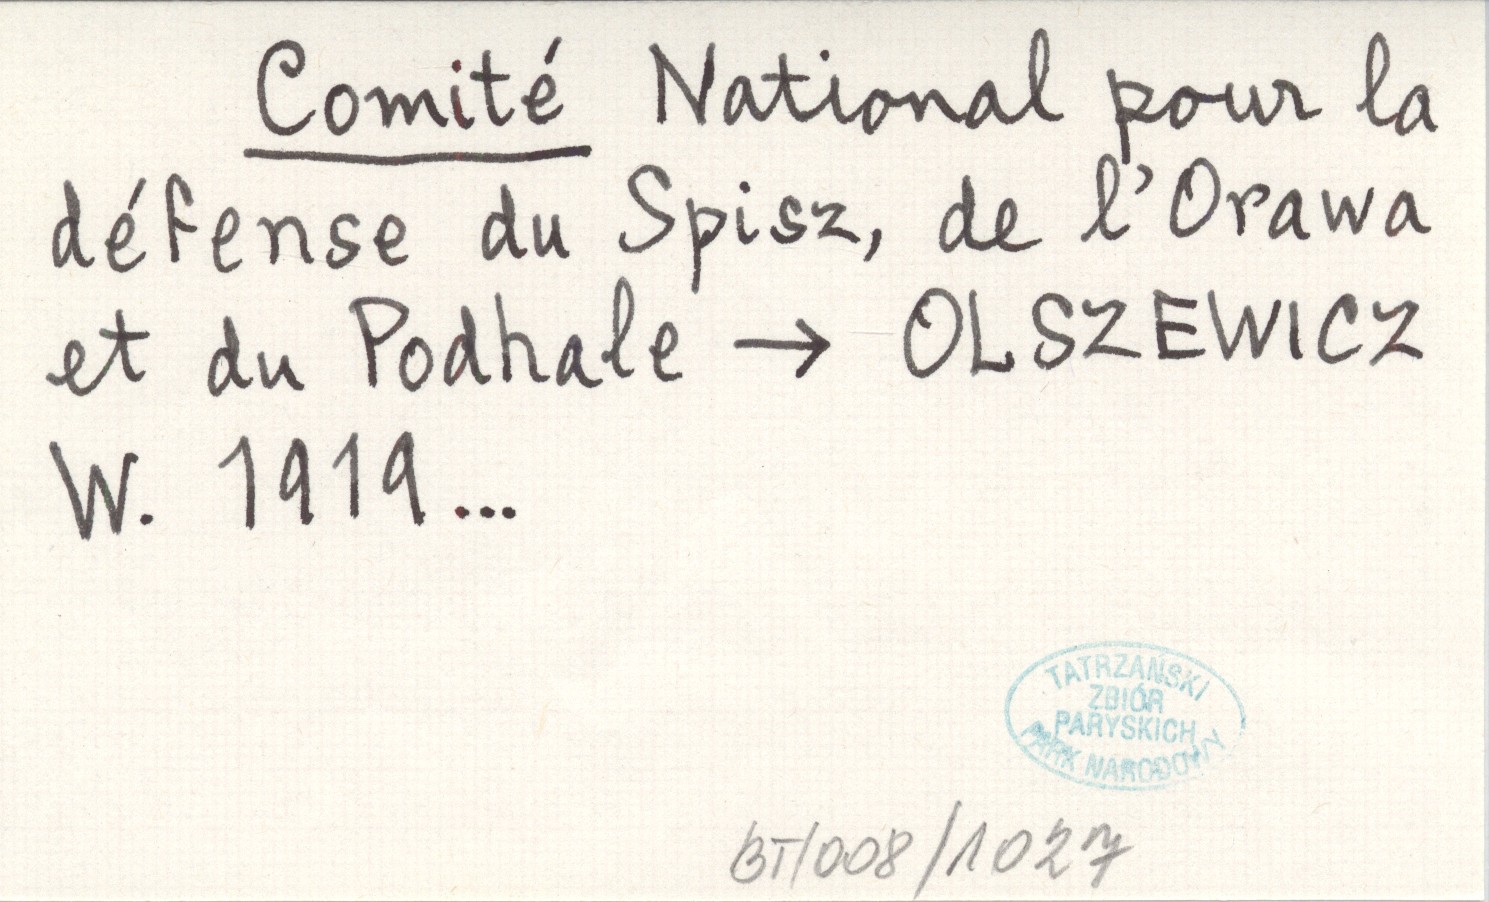 Comité National pour la
défense du Spisz, de l'Orawa
et du Podhale → OLSZEWICZ
W. 1919...
TATRZAŃSKI
ZBIÓR
PARYSKICH
PARK NARODOWY
BT/008/1027